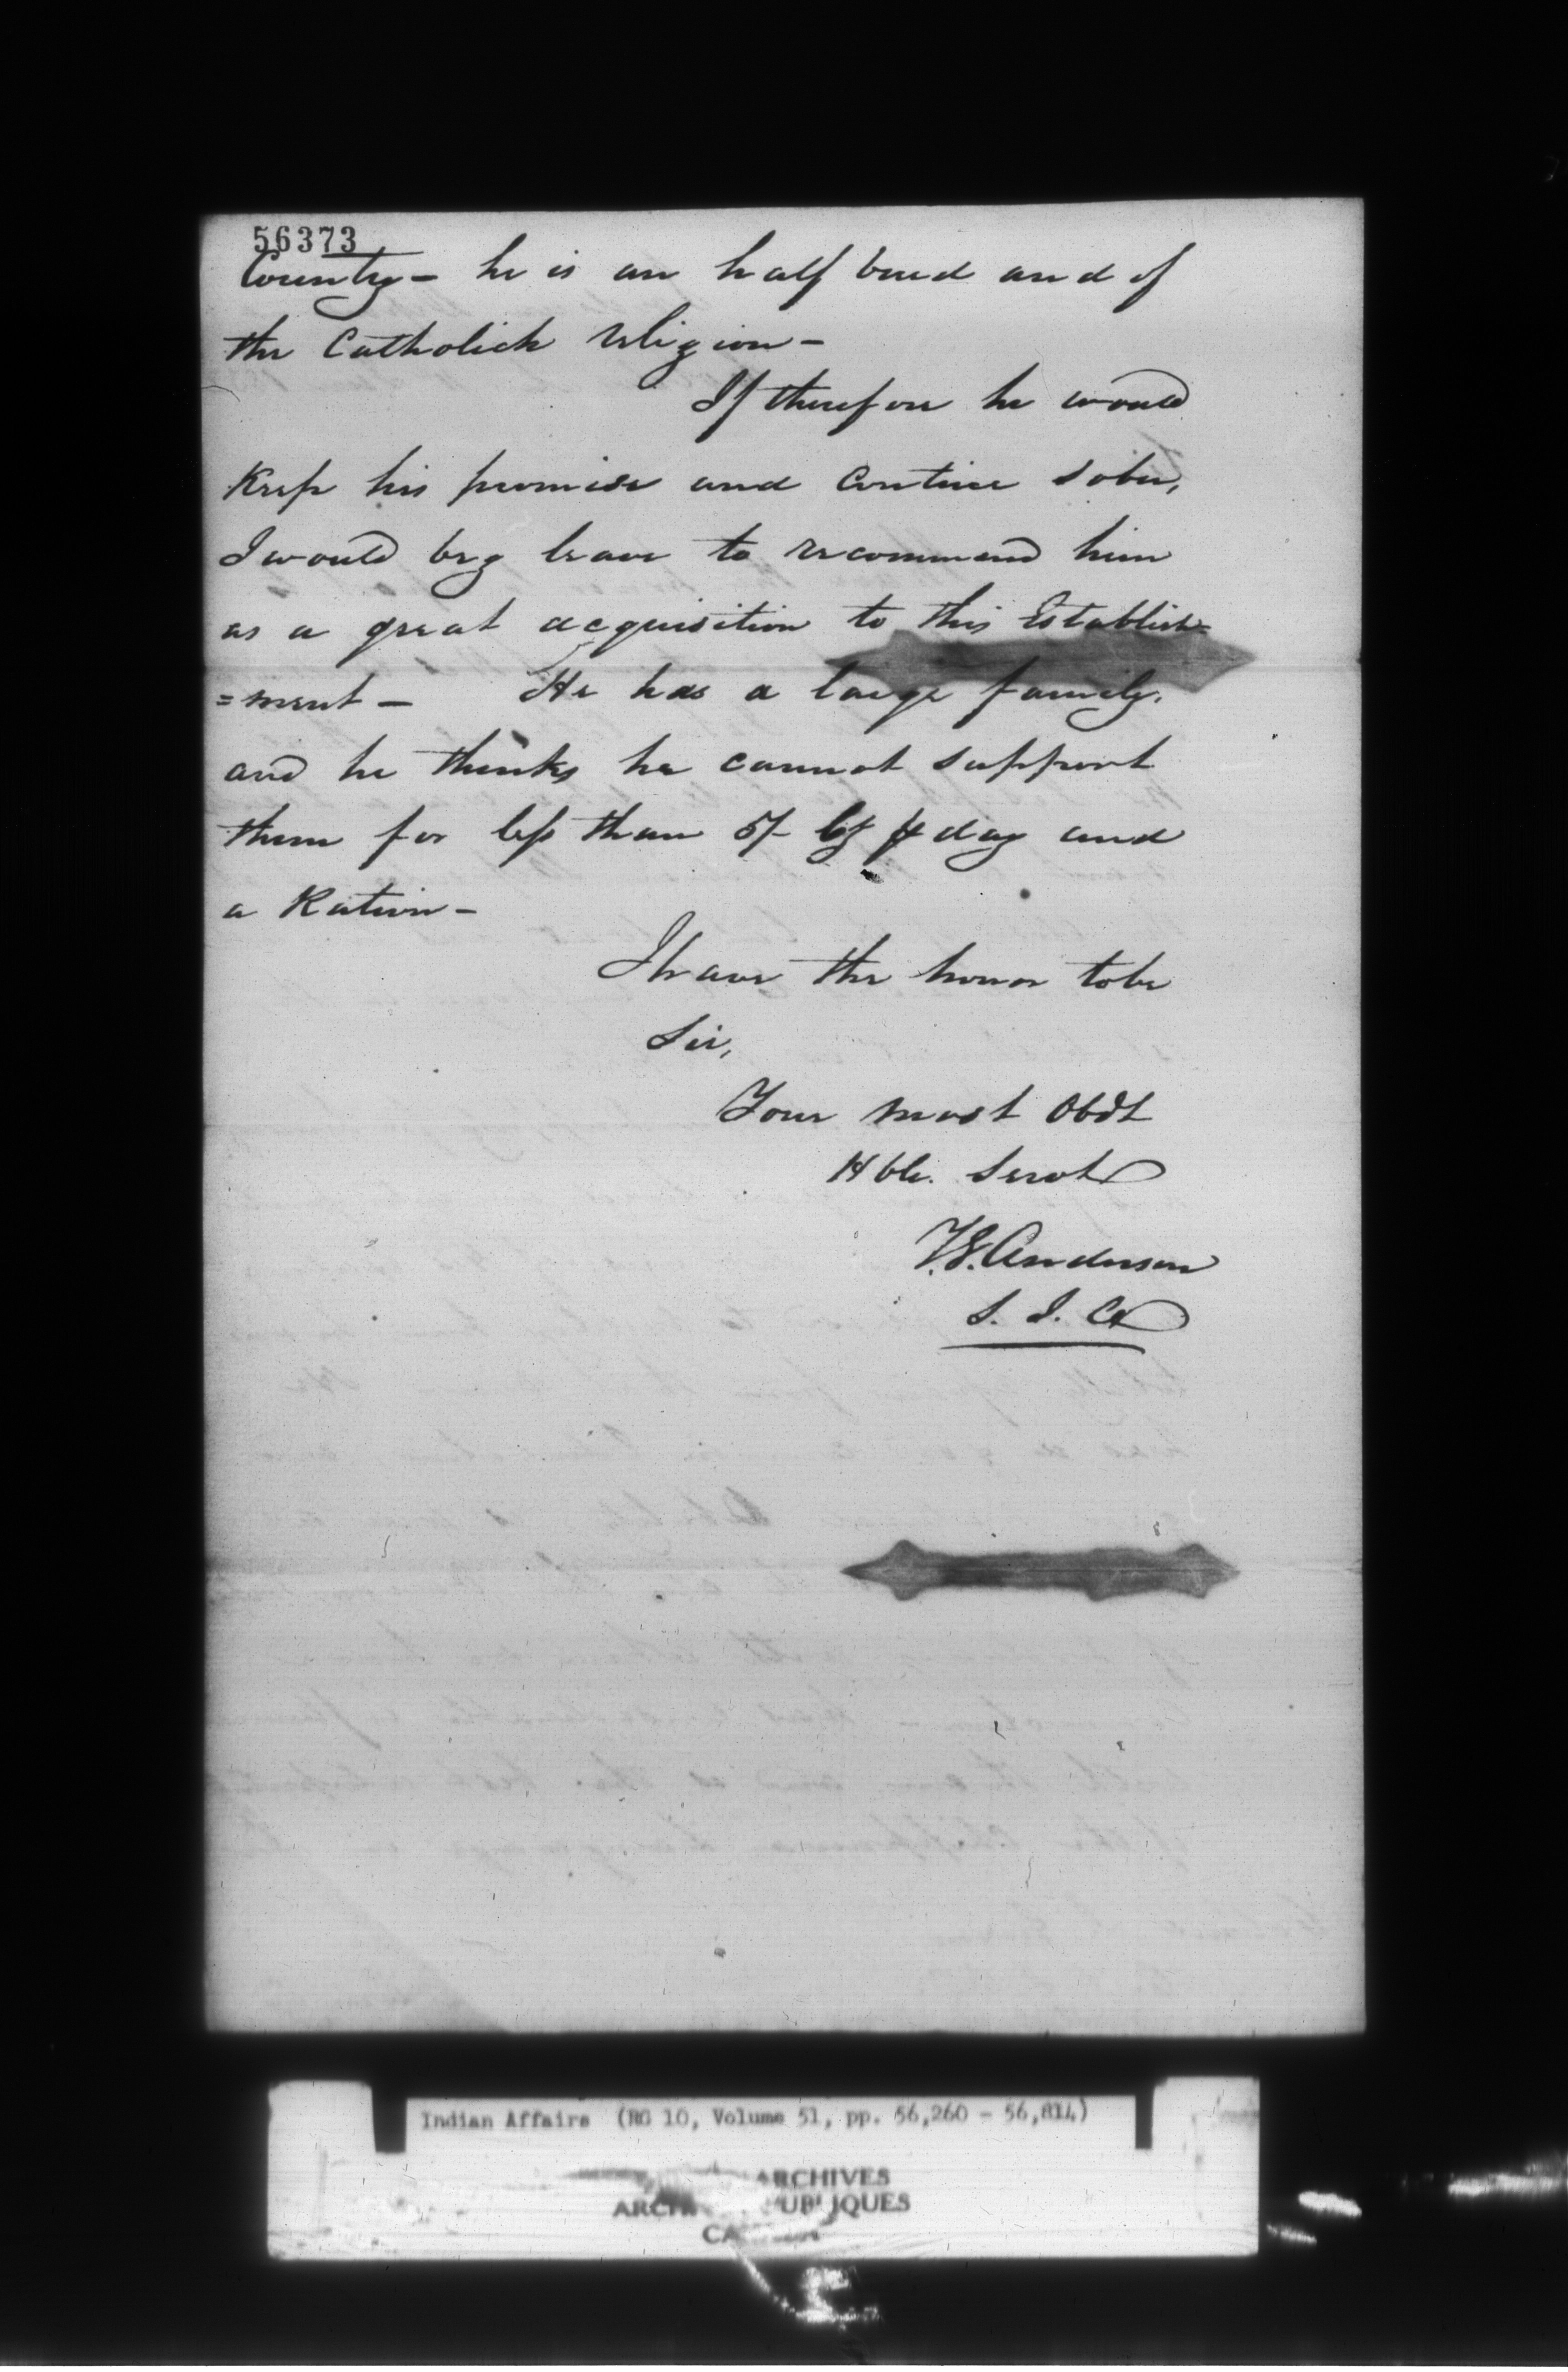 56373
Country - he is an half breed and of
the Catholick religion -
If therefore he would
Keep his promise and Contine sober,
I would beg leave to recommend him
as a great acquisition to this Establish=
=ment - He has a large family,
and he thinks he cannot support
them for less than 5/- Cy ⅌ day and
a Ration -
I have the honor to be
Sir,
Your most Obdt
Hble. Servt
T.G. Anderson
S. I. A
Indian Affairs (RG 10, Volume 51, pp. 56,260 - 56,814)
ARCHIVES